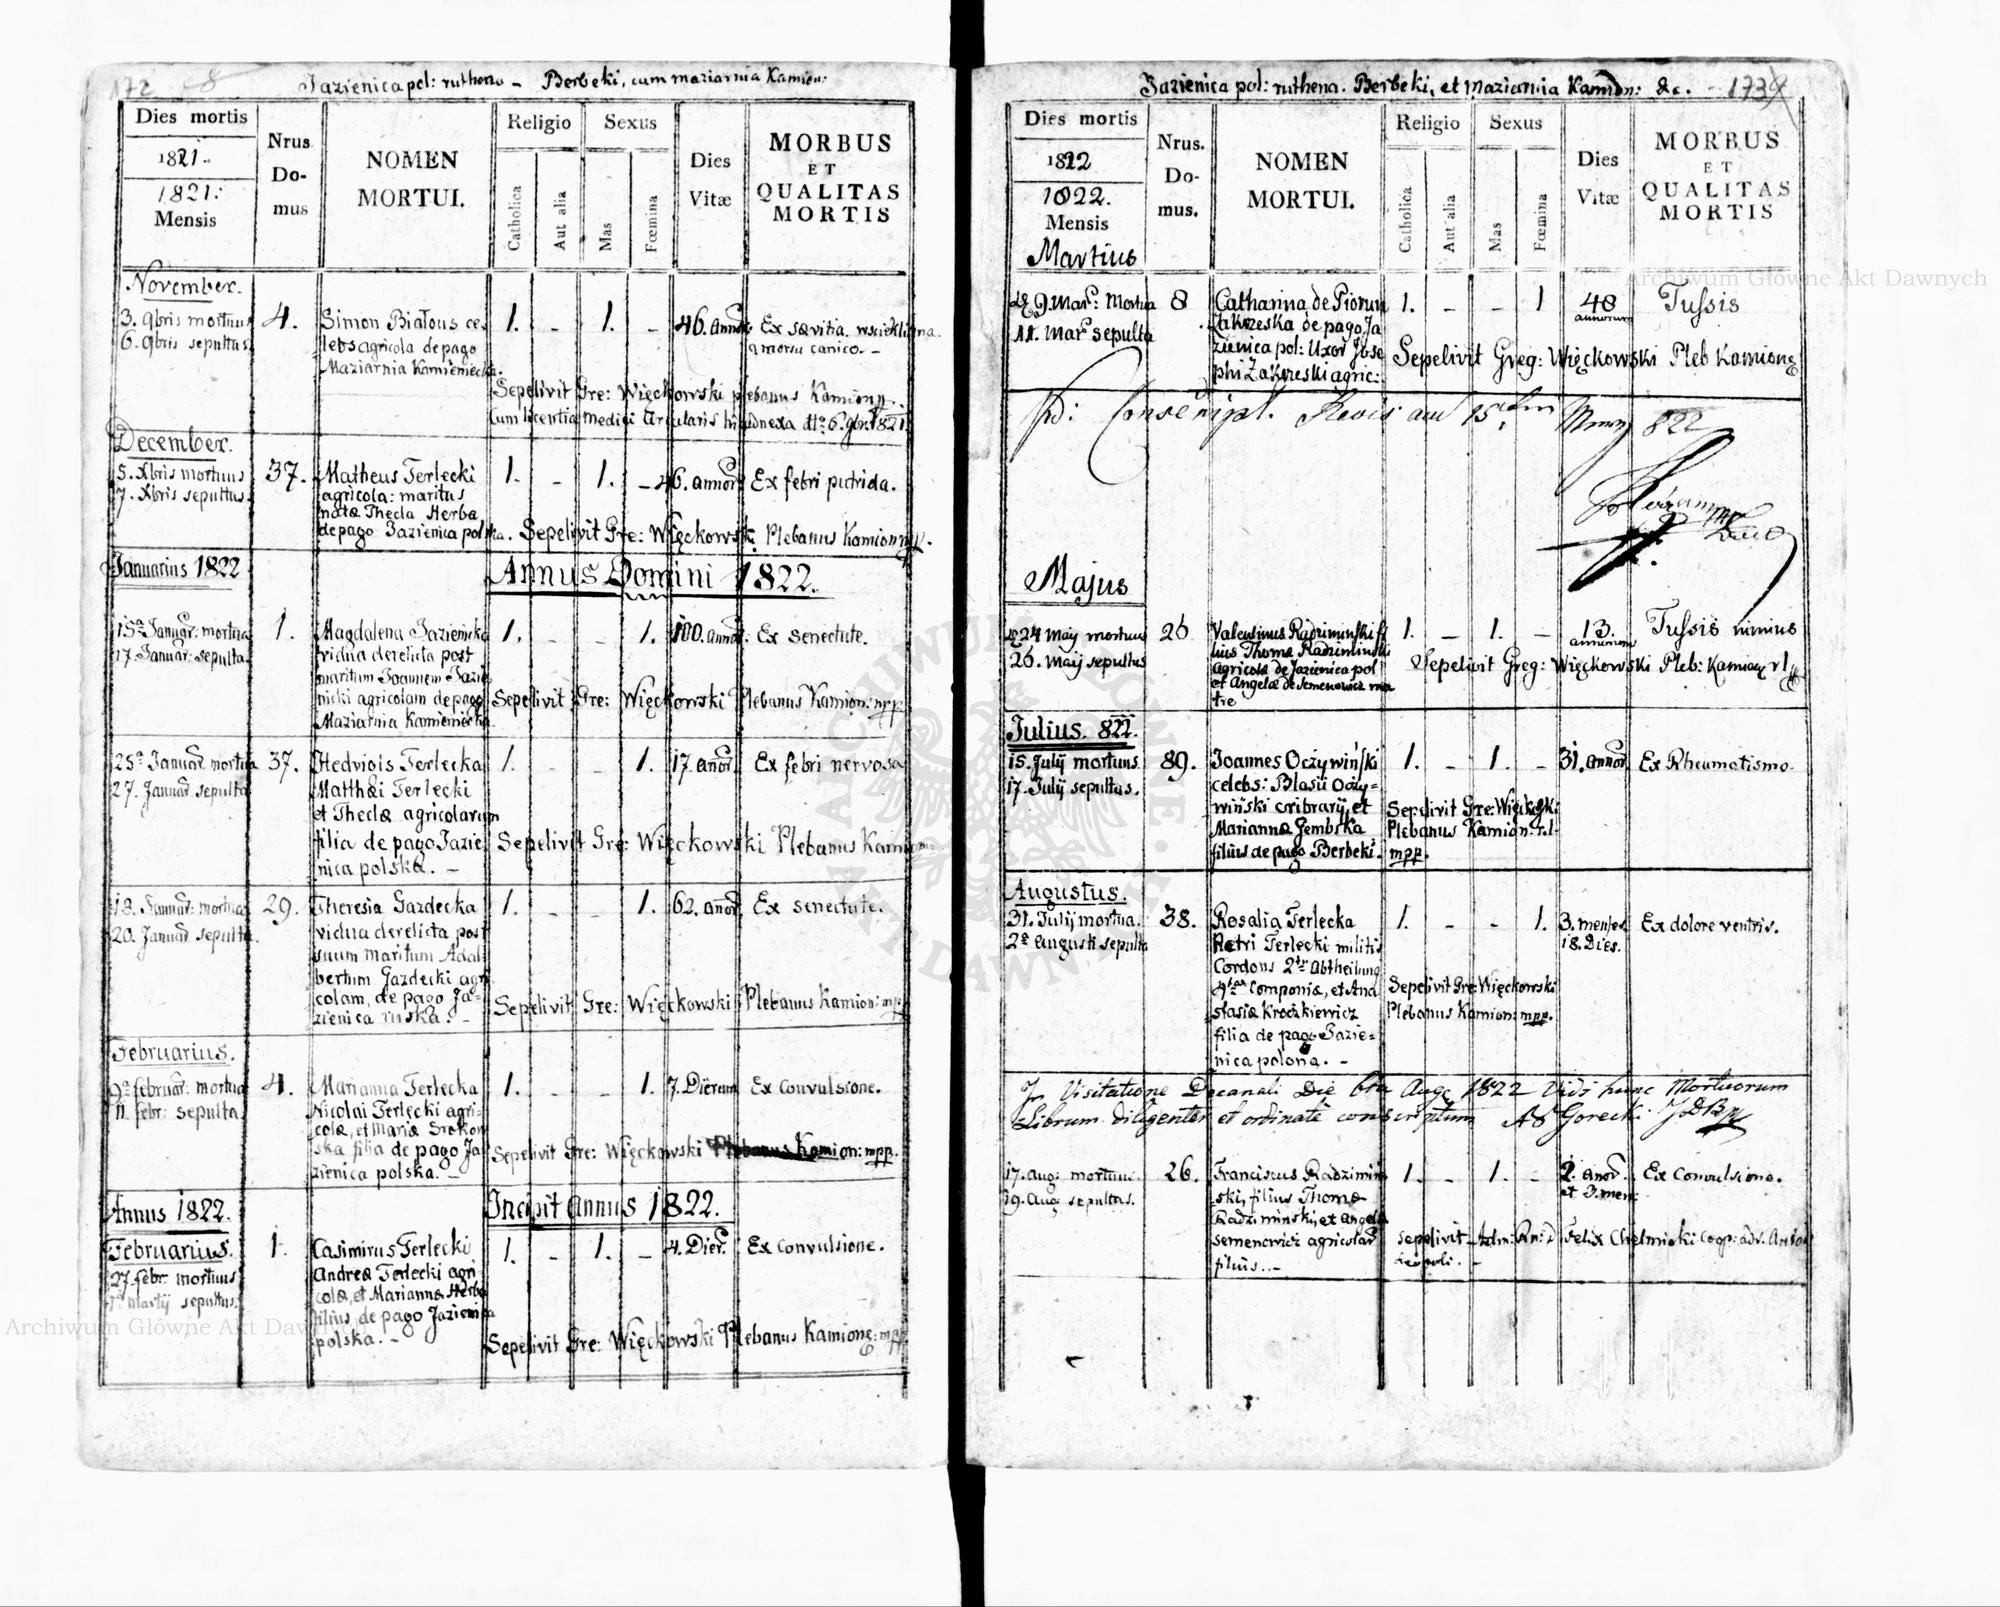 172
Jazienica pol: ruthena – Berbeki, cum maziarnia Kamion:
Dies mortis
1821.
1821:
Mensis
Nrus
Do-
mus
NOMEN
MORTUI.
Religio
Catholica
Aut alia
Sexus
Mas
Fœmina
Dies
Vitæ
MORBUS
ET
QUALITAS
MORTIS
November.
3. 9bris mortuus
6. 9bris sepultus
4.
Simon Białous ce-
lebs agricola de pago
Maziarnia Kamieniecka.
1. - 1. -
46. annor:
Ex sævitia wscieklizna.
a morsu canico. –
Sepelivit Gre: Więckowski plebanus Kamion
Cum licentia Medici Circularis hic adnexa dto 6. 9br. 1821.
December.
5. Xbris mortuus
7. Xbris sepultus.
37.
Matheus Terlecki
agricola: maritus
natæ Thecla Herba
de pago Jazienica polska.
1. - 1. -
46. annor
Ex febri putrida.
Sepelivit Gre: Więckowski Plebanus Kamion mpp.
Januarius 1822
Annus Domini 1822.
15a Januar: mortua
17. Januar: sepulta.
1.
Magdalena Jazienicka
vidua derelicta post
maritum Joannem Jazie
nicki agricolam de pago
Maziarnia Kamieniecka.
1. - - 1.
100. annor:
Ex senectute.
Sepelivit Gre: Więckowski Plebanus Kamion: mpp.
25a Januar. mortua
27. Januar. sepulta
37.
Hedvigis Terlecka
Matthæi Terlecki
et Theclæ agricolarum
filia de pago Jazie
nica polska. –
1. - - 1.
17. anor.
Ex febri nervosa
Sepelivit Gre: Więckowski Plebanus Kamion
18. Januar: mortua
20. Januar sepulta.
29.
Theresia Gazdecka
vidua derelicta post
suum maritum Adal
bertum Gazdecki agri
colam, de pago Ja=
zienica ruska. –
1. - - 1.
62. anor.
Ex senectute.
Sepelivit Gre: Więckowski Plebanus Kamion: mpp
Februarius.
9a februar: mortua
11. febr: sepulta
4.
Marianna Terlecka
Nicolai Terlecki agri-
colæ, et Mariæ Srokow
ska filia de pago Ja
zienica polska. –
1. - - 1.
7. Dierum
Ex Convulsione.
Sepelivit Gre: Więckowski Plebanus Kamion: mpp.
Annus 1822.
Incipit Annus 1822.
Februarius.
27. febr. mortuus
1a Martij sepultus.
1.
Casimirus Terlecki
Andreæ Terlecki agri-
colæ, et Mariannæ Herba
filius, de pago Jazienica
polska. –
1. - 1. -
4. Dier.
Ex Convulsione.
Sepelivit Gre: Więckowski Plebanus Kamion: mpp
Jazienica pol: ruthena. Berbeki, et Maziarnia Kamion: &c.
173
Dies mortis
1822
1822.
Mensis
Martius
Nrus.
Do-
mus.
NOMEN
MORTUI.
Religio
Catholica
Aut alia
Sexus
Mas
Fœmina
Dies
Vitæ
MORBUS
ET
QUALITAS
MORTIS
9. Mar: Mortua
11. Mar: sepulta
8
Catharina de Piorun
Zakrzeska de pago Ja
zienica pol: Uxor Jose
phi Zakrzeski agric:
1. - - 1
40
annorum
Tussis
Sepelivit Greg: Więckowski Pleb Kamion
822
Majus
24 May mortuus
26. Maij sepultus
26
Valentinus Radziminski fi
lius Thomæ Radziminski
Agricolæ de Jazienica pol
et Angelæ de Semenowicz ma
tre
1. - 1. -
13.
annorum
Tussis nimius
Sepelivit Greg: Więckowski Pleb: Kamion
Julius. 822.
15. Julij mortuus
17. Julij sepultus.
89.
Joannes Oczywiński
celebs: Blasii Oczy=
wiński cribrarij, et
Mariannæ Gembska
filius de pago Berbeki.
1. - 1. -
31. annor.
Ex Rheumatismo.
Sepelivit Gre: Więckowski
Plebanus Kamion: r.l.
mpp.
Augustus.
31. Julij mortua.
2a Augusti sepulta
38.
Rosalia Terlecka
Petri Terlecki militis
Cordons 2ter Abtheilung
Componiæ, et Ana
stasiæ Kroczkiewicz
filia de pago Jazie=
nica polona. –
1. - - 1.
3. menses
18. Dies.
Ex dolore ventris.
Sepelivit Gre: Więckowski
Plebanus Kamion: mpp.
In Visitatione Decanali Die 6ta Aug 1822 Vidi hunc Mortuorum
Librum diligenter et ordinate conscriptum Gorecki
17. Aug: mortuus.
19. Aug. sepultus.
26.
Franciscus Radzimin
ski, filius Thomæ
Radziminski, et Angelæ
Semenowicz agricolar
filius. –
1. - 1. -
2. anor.
et 3. men:
Ex Convulsione.
Sepelivit Adm: Rn: D Felix Chelmicki Coop:
Archiwum Główne Akt Dawnych
Archiwum Główne Akt Dawnych
ARCHIWUM GŁÓWNE AKT DAWNYCH